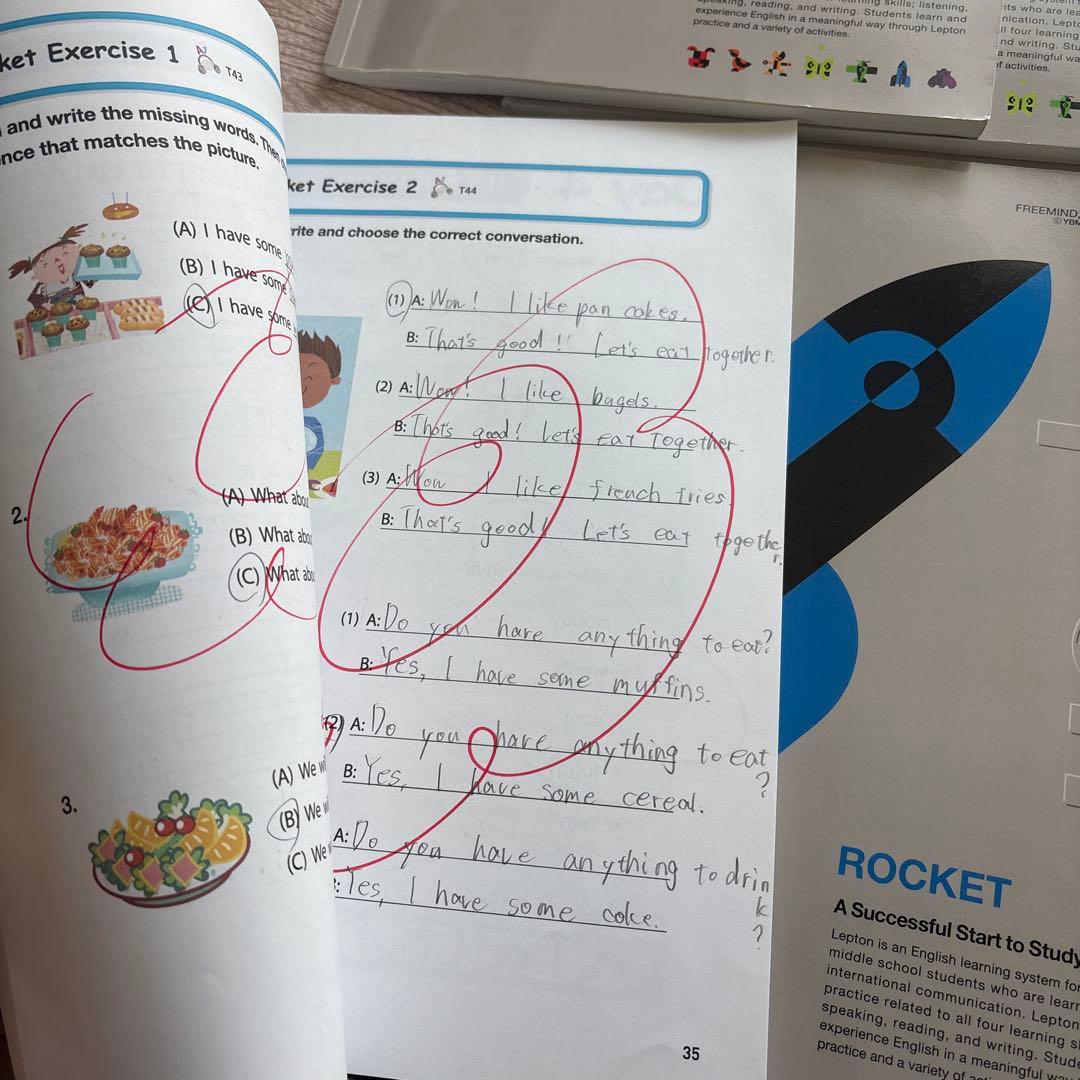 ket Exercise 1
T43
and write the missing words. Then
nce that matches the picture.
(A) I have some
(B) I have some
(C) I have some
2.
(A) What abou
(B) What abo
(C) What abo
3.
(A) We wi
(B) We w
(C) We
ket Exercise 2
T44
rite and choose the correct conversation.
(1) A: Wow! I like pan cakes.
B: That's good!! Let's eat together.
(2) A: Wow! I like bagels.
B: That's good! Let's eat Together.
(3) A: Wow I like french fries
B: That's good! Let's eat together.
(1) A: Do you have anything to eat?
B: Yes, I have some muffins.
(2) A: Do you have anything to eat
?
B: Yes, I have some cereal.
A: Do you have anything to drin
k
?
: Yes, I have some coke.
35
speaking, reading, and writing. Students learn and
experience English in a meaningful way through Lepton
practice and a variety of activities.
nts who are lea
nication. Lept
ll four learning
nd writing. Stu
a meaningful wa
of activities.
FREEMIND,
©YBM
ROCKET
A Successful Start to Study
Lepton is an English learning system for
middle school students who are learn
international communication. Lepton
practice related to all four learning s
speaking, reading, and writing. Stude
experience English in a meaningful way
practice and a variety of act